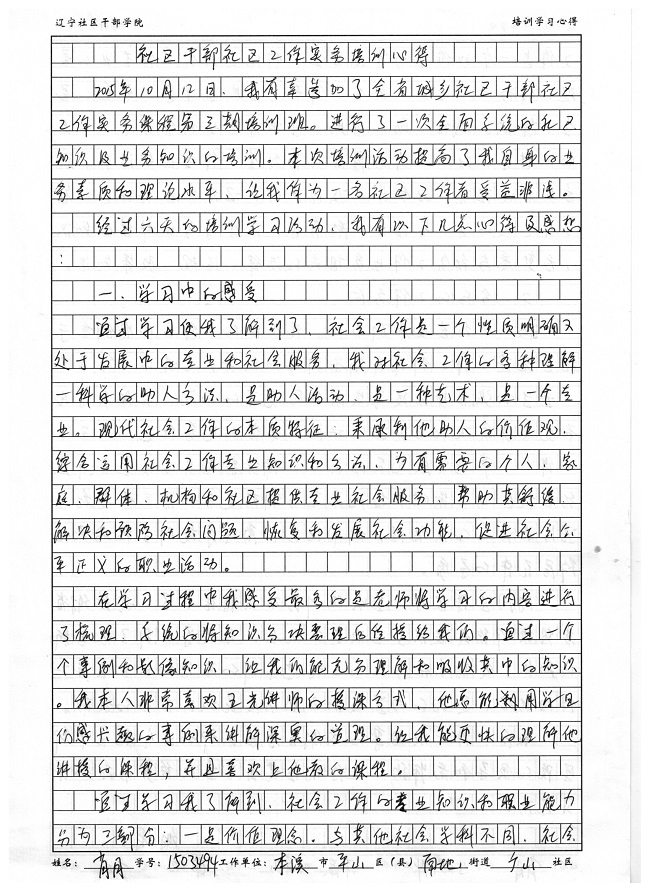 辽宁社区干部学院 培训学习心得
社区干部社区工作实务培训心得
2015年10月12日，我有幸参加了全省城乡社区干部社区
工作实务课程第三期培训班。进行了一次全面系统的社区
知识及业务知识的培训。本次培训活动提高了我自身的业
务素质和理论水平，让我作为一名社区工作者受益匪浅。
经过六天的培训学习活动，我有以下几点心得及感想
：
一、学习中的感受
通过学习使我了解到了，社会工作是一个性质明确又
处于发展中的专业和社会服务，我对社会工作的多种理解
一科学的助人方法，是助人活动，是一种艺术，是一个专
业。现代社会工作的本质特征：秉承利他助人的价值观，
综合运用社会工作专业知识和方法，为有需要的个人、家
庭、群体、机构和社区提供专业社会服务，帮助其舒缓、
解决和预防社会问题，恢复和发展社会功能，促进社会公
平正义的职业活动。
在学习过程中我感受最多的是老师将学习的内容进行
了梳理，系统的将知识分块整理后传授给我们。通过一个
个事例和数像知识，让我们能充分理解和吸收其中的知识
。我本人非常喜欢王光讲师的授课方式，他总能利用学员
们感兴趣的事例来讲解深奥的道理。让我能更快的理解他
讲授的课程，并且喜欢上他教的课程。
通过学习我了解到，社会工作的专业知识和职业能力
分为三部分：一是价值理念。与其他社会学科不同，社会
姓名： 学号：1503494 工作单位：本溪 市 平山 区（县） 南地 街道 千山 社区